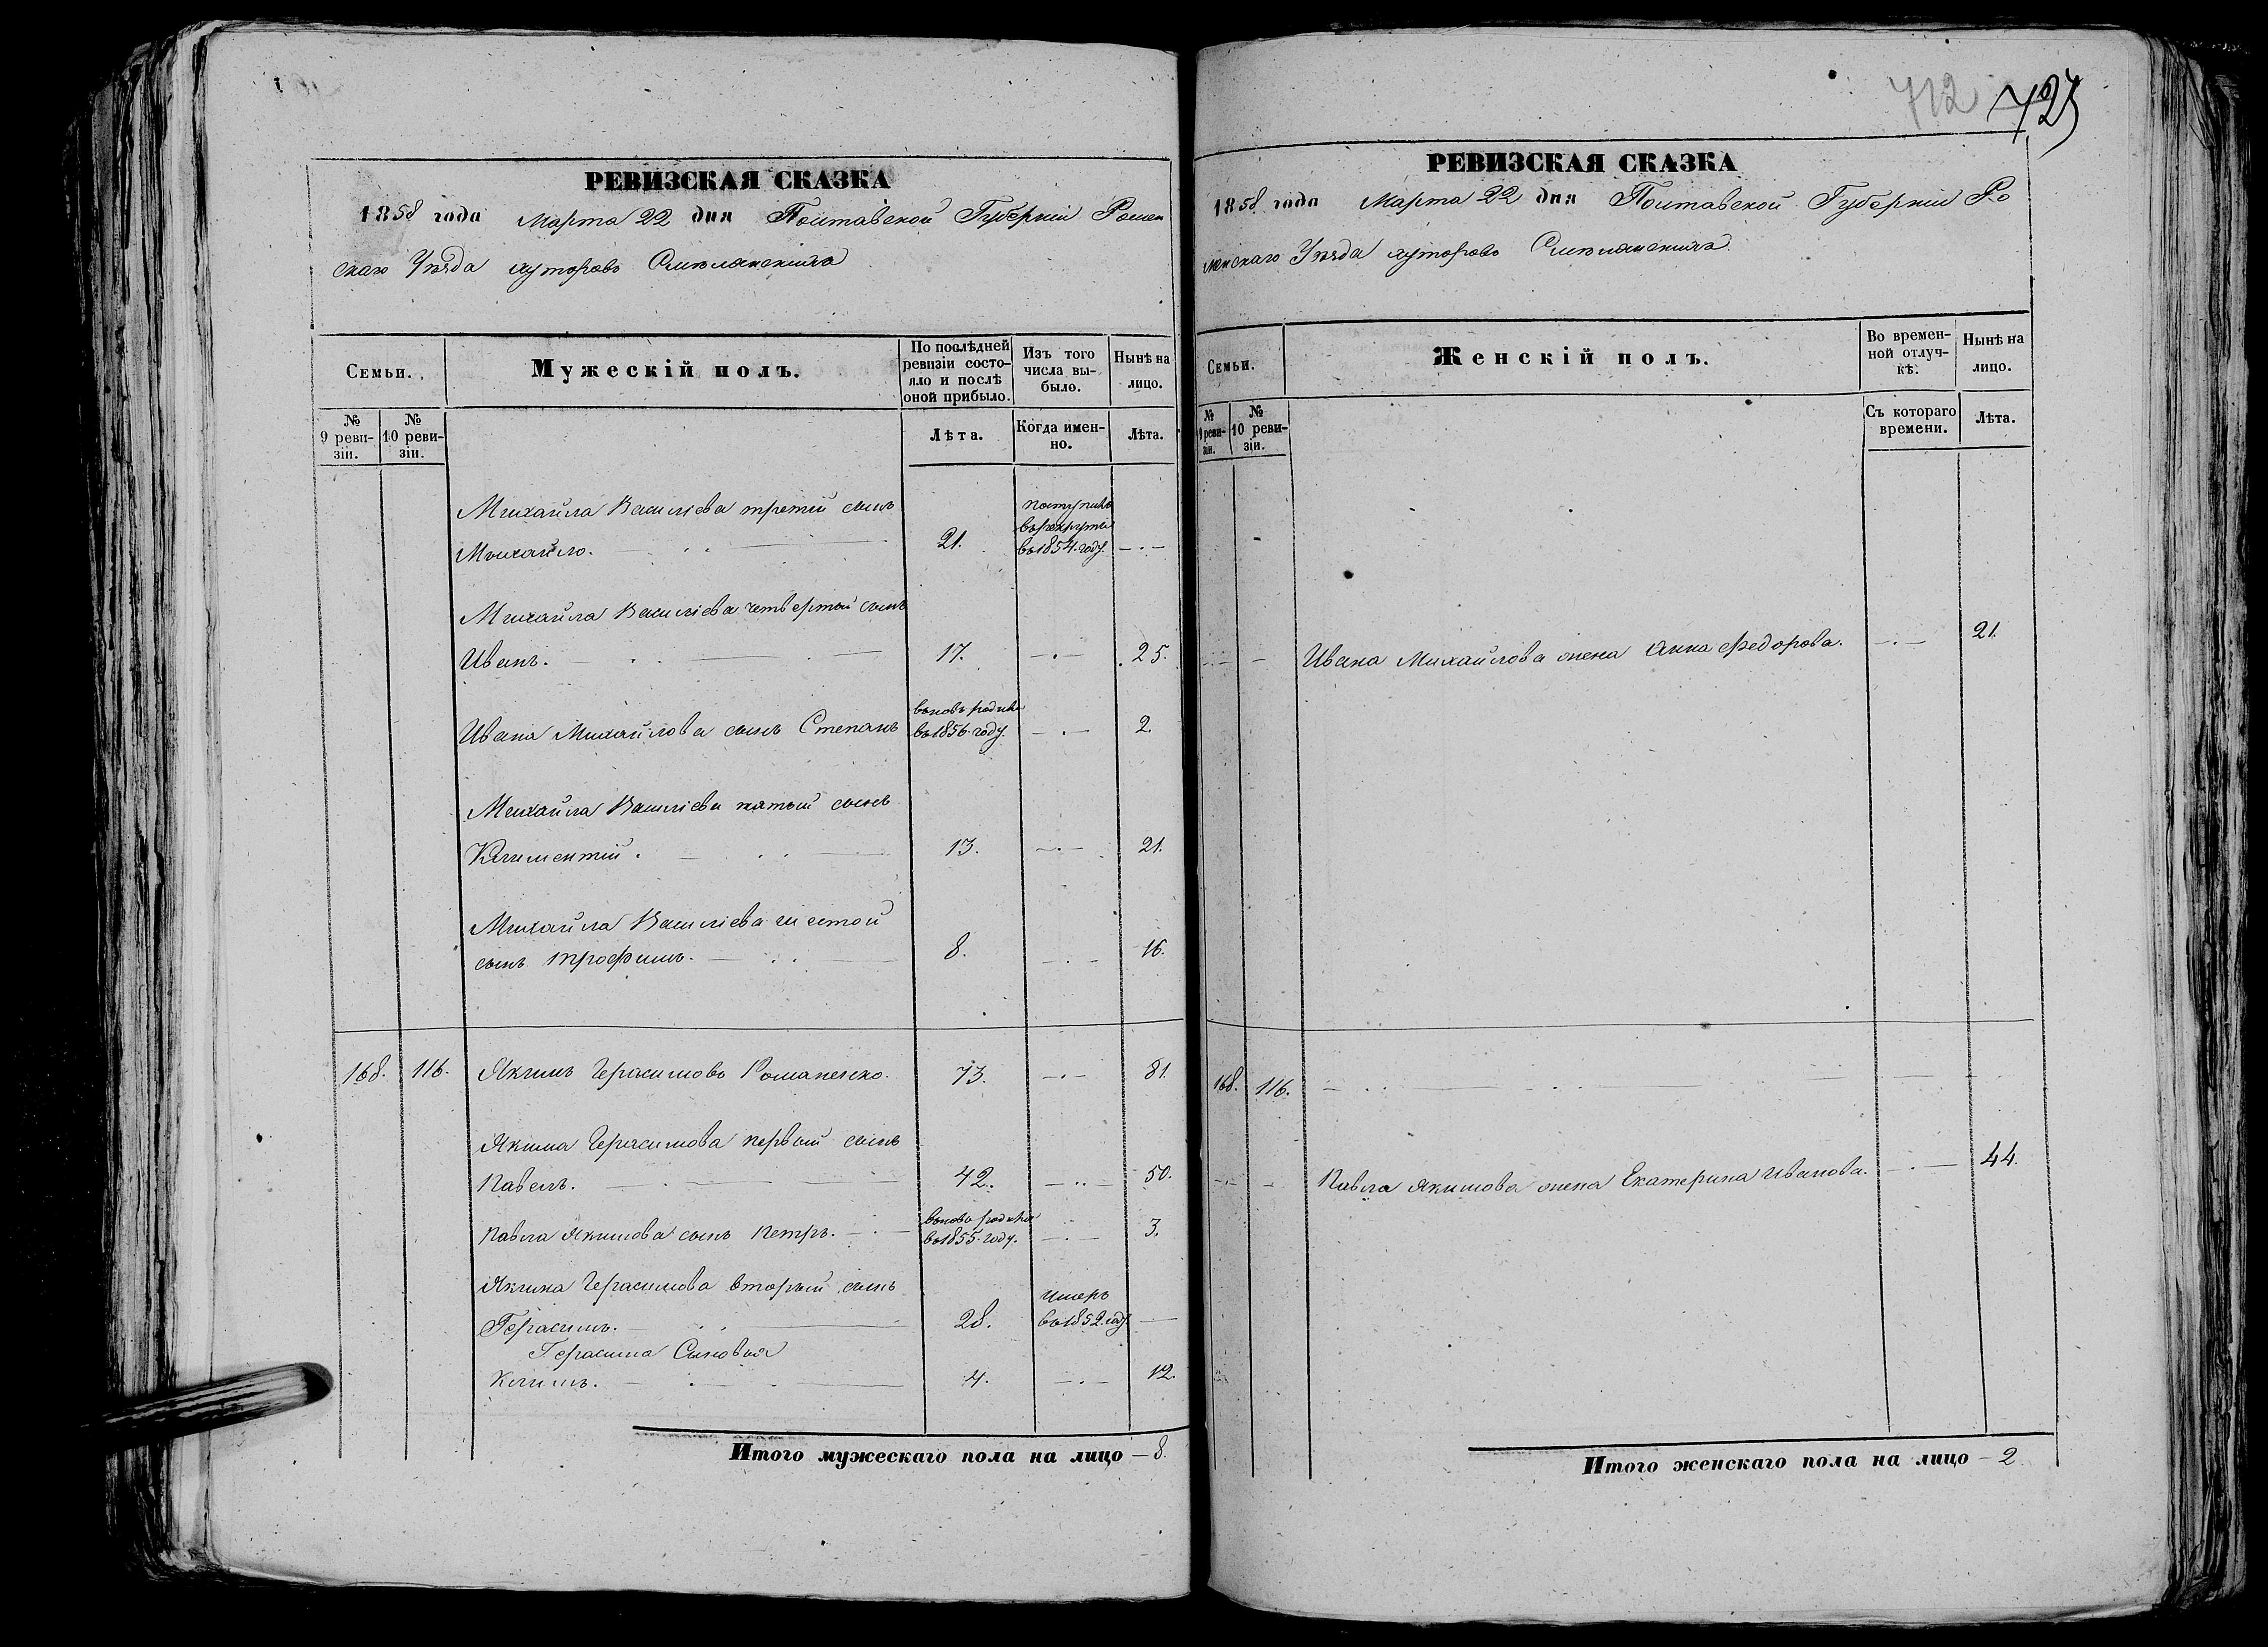 РЕВИЗСКАЯ СКАЗКА
1858 года Марта 22 дня Полтавской Губерніи Ромен
скаго Уѣзда хуторовъ Смѣлянскихъ
Семьи.
Мужескій полъ.
По послѣдней ревизіи состояло и послѣ оной прибыло.
Изъ того числа выбыло.
Нынѣ на лицо.
№ 9 ревизіи.
№ 10 ревизіи.
Лѣта.
Когда именно.
Лѣта.
Михайла Василіева третій сынъ
Михайло. 21. поступилъ в рекруты въ 1854. году. — . —
Михайла Василіева четвертый сынъ
Иванъ. 17. — . — 25.
Ивана Михайлова сынъ Степанъ вновь рожден въ 1856. году. — . — 2.
Михайла Василіева пятый сынъ
Климентій. 13. — . — 21.
Михайла Василіева шестой
сынъ Трофимъ. 8. — . — 16.
168. 116. Якимъ Герасимовъ Романенко. 73. — . — 81.
Якима Герасимова первый сынъ
Павелъ. 42. — .. — 50.
Павла Якимова сынъ Петръ. вновь рожден въ 1855. году. — . — 3.
Якима Герасимова вторый сынъ
Герасимъ. 28. умеръ въ 1852. году. —
Герасима Сыновья
Климъ. 4. — . — 12.
Итого мужескаго пола на лицо — 8.
712 725
РЕВИЗСКАЯ СКАЗКА
1858 года Марта 22 дня Полтавской Губерніи Ро
менскаго Уѣзда хуторовъ Смѣлянскихъ
Семьи.
Женскій полъ.
Во временной отлучкѣ.
Нынѣ на лицо.
№ 9 ревизіи.
№ 10 ревизіи.
Съ котораго времени.
Лѣта.
Ивана Михайлова жена Анна Федорова. — . — 21.
168. 116.
Павла Якимова жена Екатерина Иванова. — . — 44.
Итого женскаго пола на лицо — 2